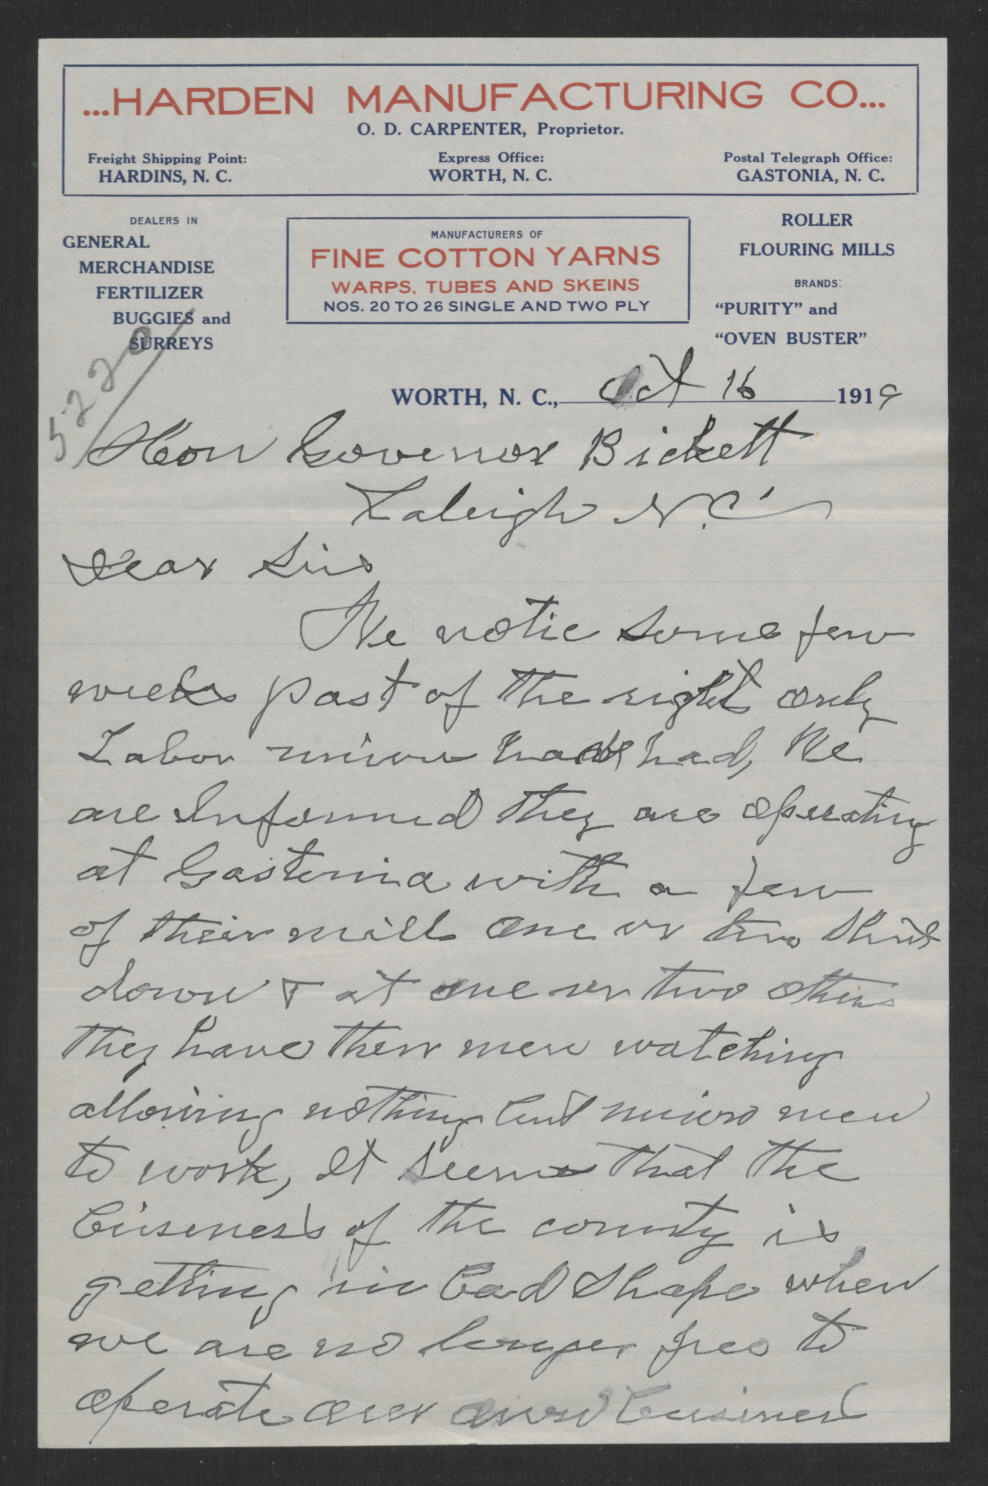 ...HARDEN MANUFACTURING CO...
O. D. CARPENTER, Proprietor.
Freight Shipping Point:
HARDINS, N. C.
Express Office:
WORTH, N. C.
Postal Telegraph Office:
GASTONIA, N. C.
DEALERS IN
GENERAL
MERCHANDISE
FERTILIZER
BUGGIES and
SURREYS
MANUFACTURERS OF
FINE COTTON YARNS
WARPS, TUBES AND SKEINS
NOS. 20 TO 26 SINGLE AND TWO PLY
ROLLER
FLOURING MILLS
BRANDS:
“PURITY” and
“OVEN BUSTER”
5220
WORTH, N. C., Oct 16 1919
Hon Governor Bickett
Raleigh N.C.
Dear Sir
We notic some few
weeks past of the right only
Labor union had, We
are Informed they are operating
at Gastonia with a few
of their mill one or two Shut
down & at one or two others
they have their men watching
allowing nothing but union men
to work, It seems that the
Buseness of the county is
getting in bad Shape when
we are no longer free to
operate over own Buseness